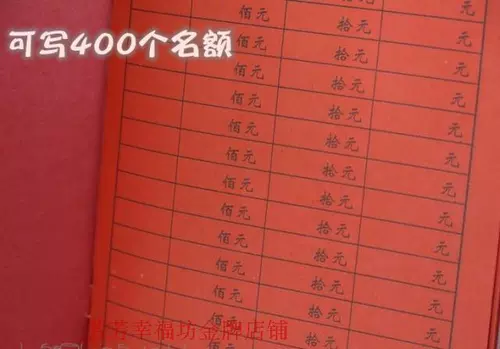 可写400个名额
佰元 拾元 元
佰元 拾元 元
佰元 拾元 元
佰元 拾元 元
佰元 拾元 元
佰元 拾元 元
佰元 拾元 元
佰元 拾元 元
佰元 拾元 元
佰元 拾元 元
佰元 拾元 元
佰元 拾元
幸福坊金牌店铺